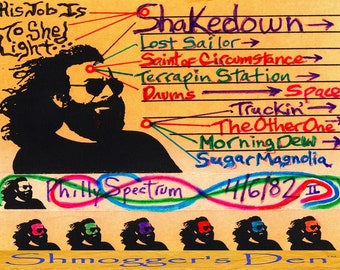 His Job Is
To Shed
Light:
Shakedown
Lost Sailor
Saint of Circumstance
Terrapin Station
Drums Space
Truckin'
The Other One
Morning Dew
Sugar Magnolia
Philly Spectrum 4/6/82 II
Shmogger's Den